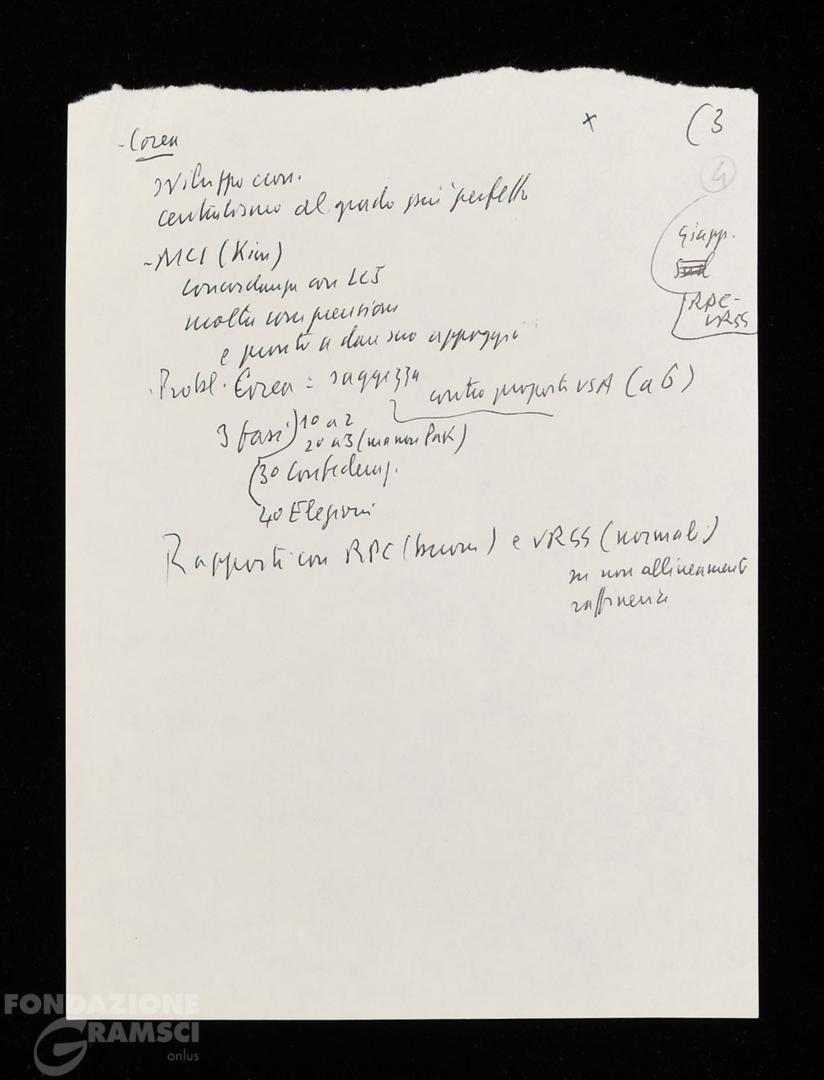 - Corea
x
(3
4
sviluppo econ.
centralismo al grado più perfetto
Giapp.
Sud
RPC -
URSS
- MCI (Kim)
concordanza con LCJ
molta comprensione
e pronto a dare suo appoggio
. Probl. Corea = saggezza
contro proposte USA (a 6)
3 fasi
1o a 2
2o a 3 (ma non Park)
3o Confederaz.
4o Elezioni
Rapporti con RPC (buoni) e URSS (normali)
su non allineamento
FONDAZIONE
GRAMSCI
onlus